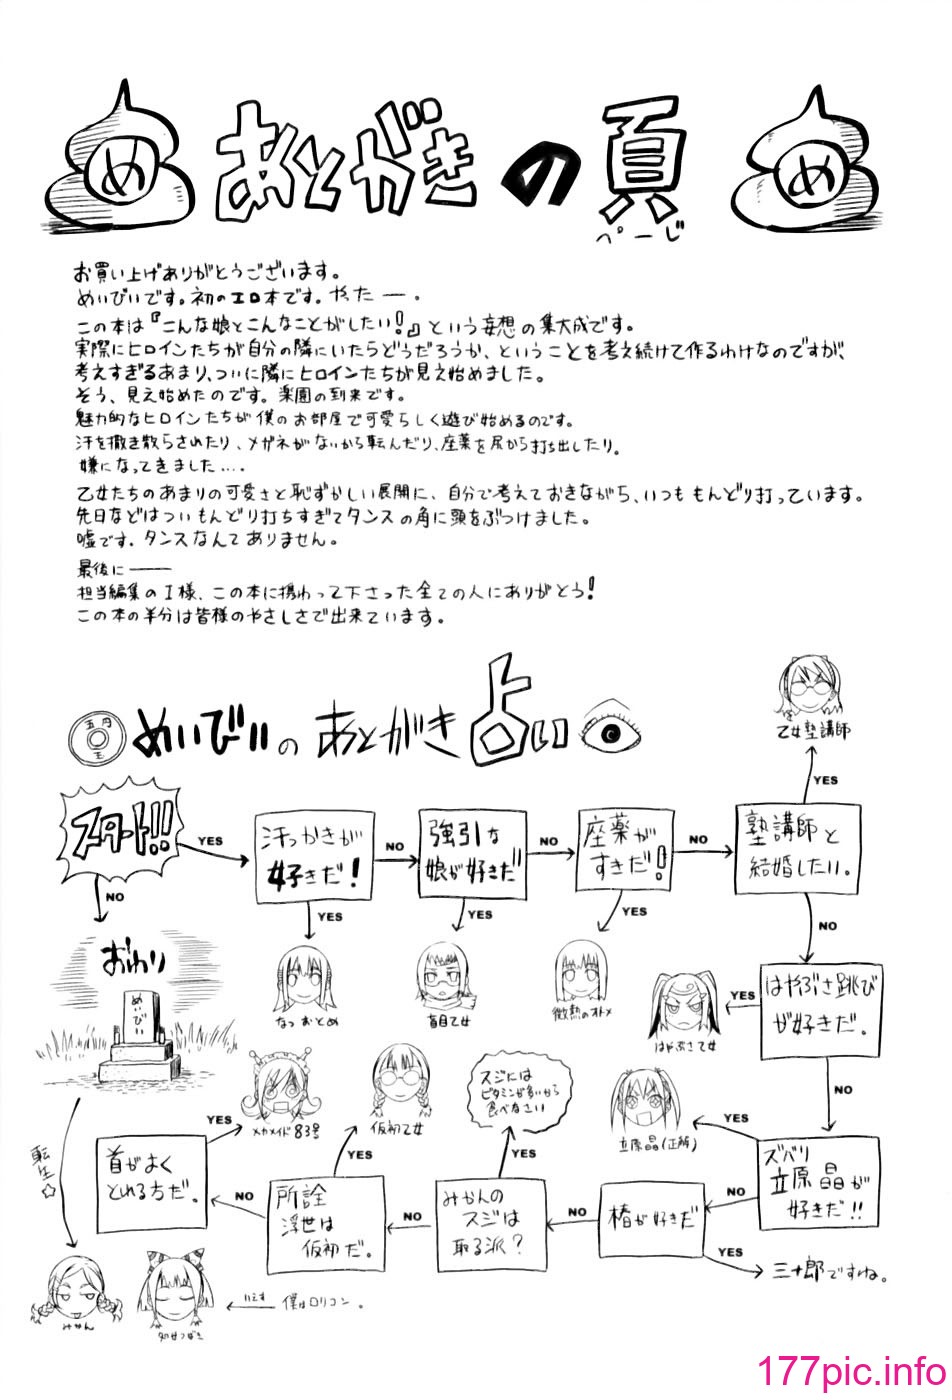 め
あとがきの頁
ぺーじ
め
お買い上げありがとうございます。
めいびいです。初のエロ本です。やったー。
この本は『こんな娘とこんなことがしたい!』という妄想の集大成です。
実際にヒロインたちが自分の隣にいたらどうだろうか、ということを考え続けて作るわけなのですが、
考えすぎるあまり、ついに隣にヒロインたちが見え始めました。
そう、見え始めたのです。楽園の到来です。
魅力的なヒロインたちが僕のお部屋で可愛らしく遊び始めるのです。
汗を撒き散らされたり、メガネがないから転んだり、座薬を尻から打ち出したり。
嫌になってきました....
乙女たちのあまりの可愛さと恥ずかしい展開に、自分で考えておきながら、いつももんどり打っています。
先日などはついもんどり打ちすぎてタンスの角に頭をぶつけました。
嘘です。タンスなんてありません。
最後に――
担当編集のI様、この本に携わって下さった全ての人にありがとう!
この本の半分は皆様のやさしさで出来ています。
五円
玉
めいびいのあとがき占い
乙女塾講師
YES
スタート!!
YES
汗っかきが
好きだ!
NO
強引な
娘が好きだ
NO
座薬が
すきだ!
NO
塾講師と
結婚したい。
NO
YES
YES
YES
NO
おわり
めいびい
なつおとめ
盲目乙女
微熱のオトメ
はやぶさ乙女
YES
はやぶさ跳び
が好きだ。
NO
メカメイド83号
仮初乙女
スジには
ビタミンが多いから
食べなさい
立原晶(正解)
YES
ズバリ
立原晶が
好きだ!!
転生☆
首がよく
とれる方だ。
YES
NO
所詮
浮世は
仮初だ。
YES
NO
みかんの
スジは
取る派?
YES
NO
椿が好きだ
NO
YES
三十郎ですね。
みかん
処女つばき
いえす
僕はロリコン。
177pic.info